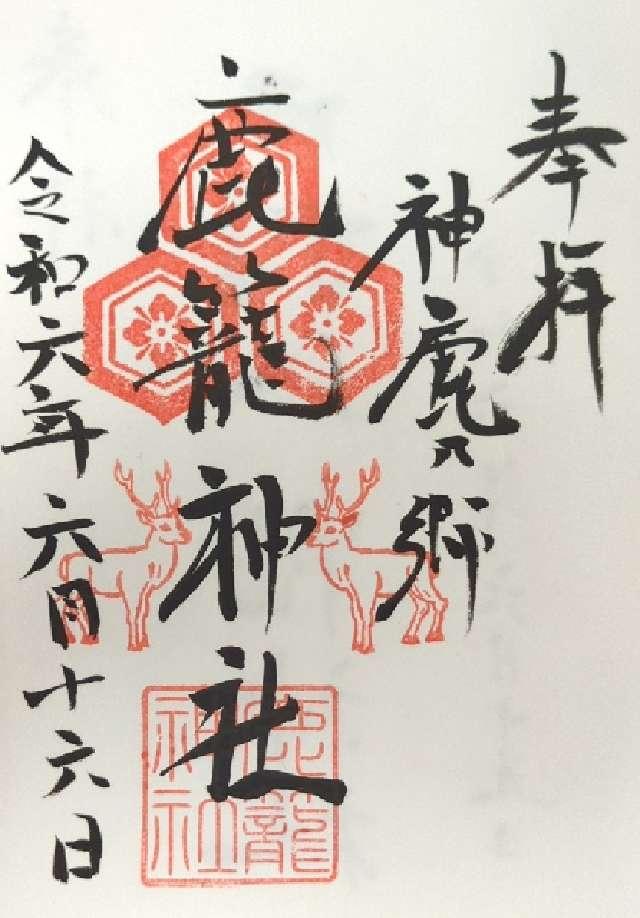 奉拝
神鹿乃郷
鹿籠神社
令和六年六月十六日
鹿籠
神社